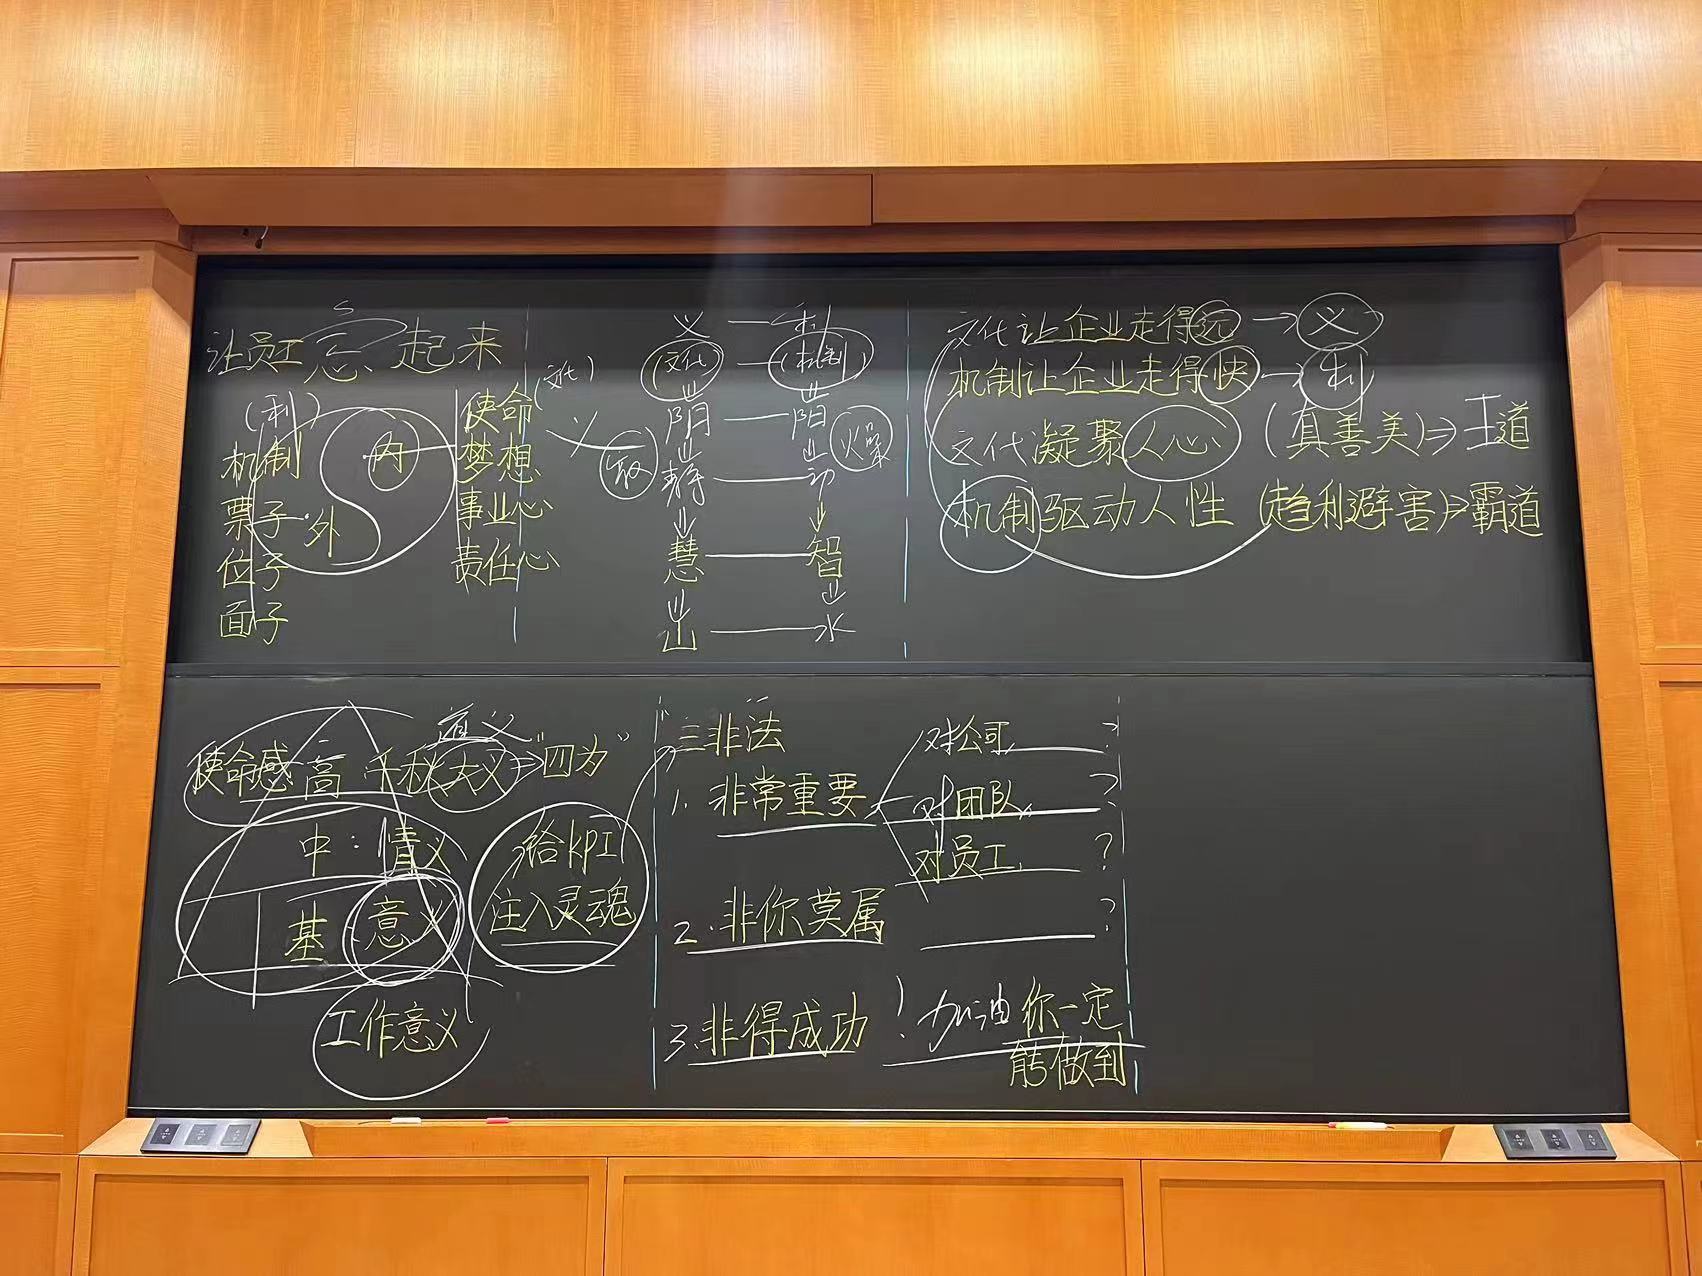 让员工忘起来
(利)
机制
票子
位子
面子
内
外
使命(文化)
梦想
事业心
责任心
义
义—利
(文化)—(机制)
阳—阳
静—动
慧—智
山—水
火爆
文化让企业走得远→义
机制让企业走得快→利
文化凝聚人心(真善美)⇒王道
机制驱动人性(趋利避害)⇒霸道
道义
使命感高 千秋大义⇒"四为"
中:情义
基:意义
工作意义
给KPI
注入灵魂
三非法
1. 非常重要
对公司 ?
对团队 ?
对员工 ?
2. 非你莫属 ?
3. 非得成功! 加油 你一定
能做到